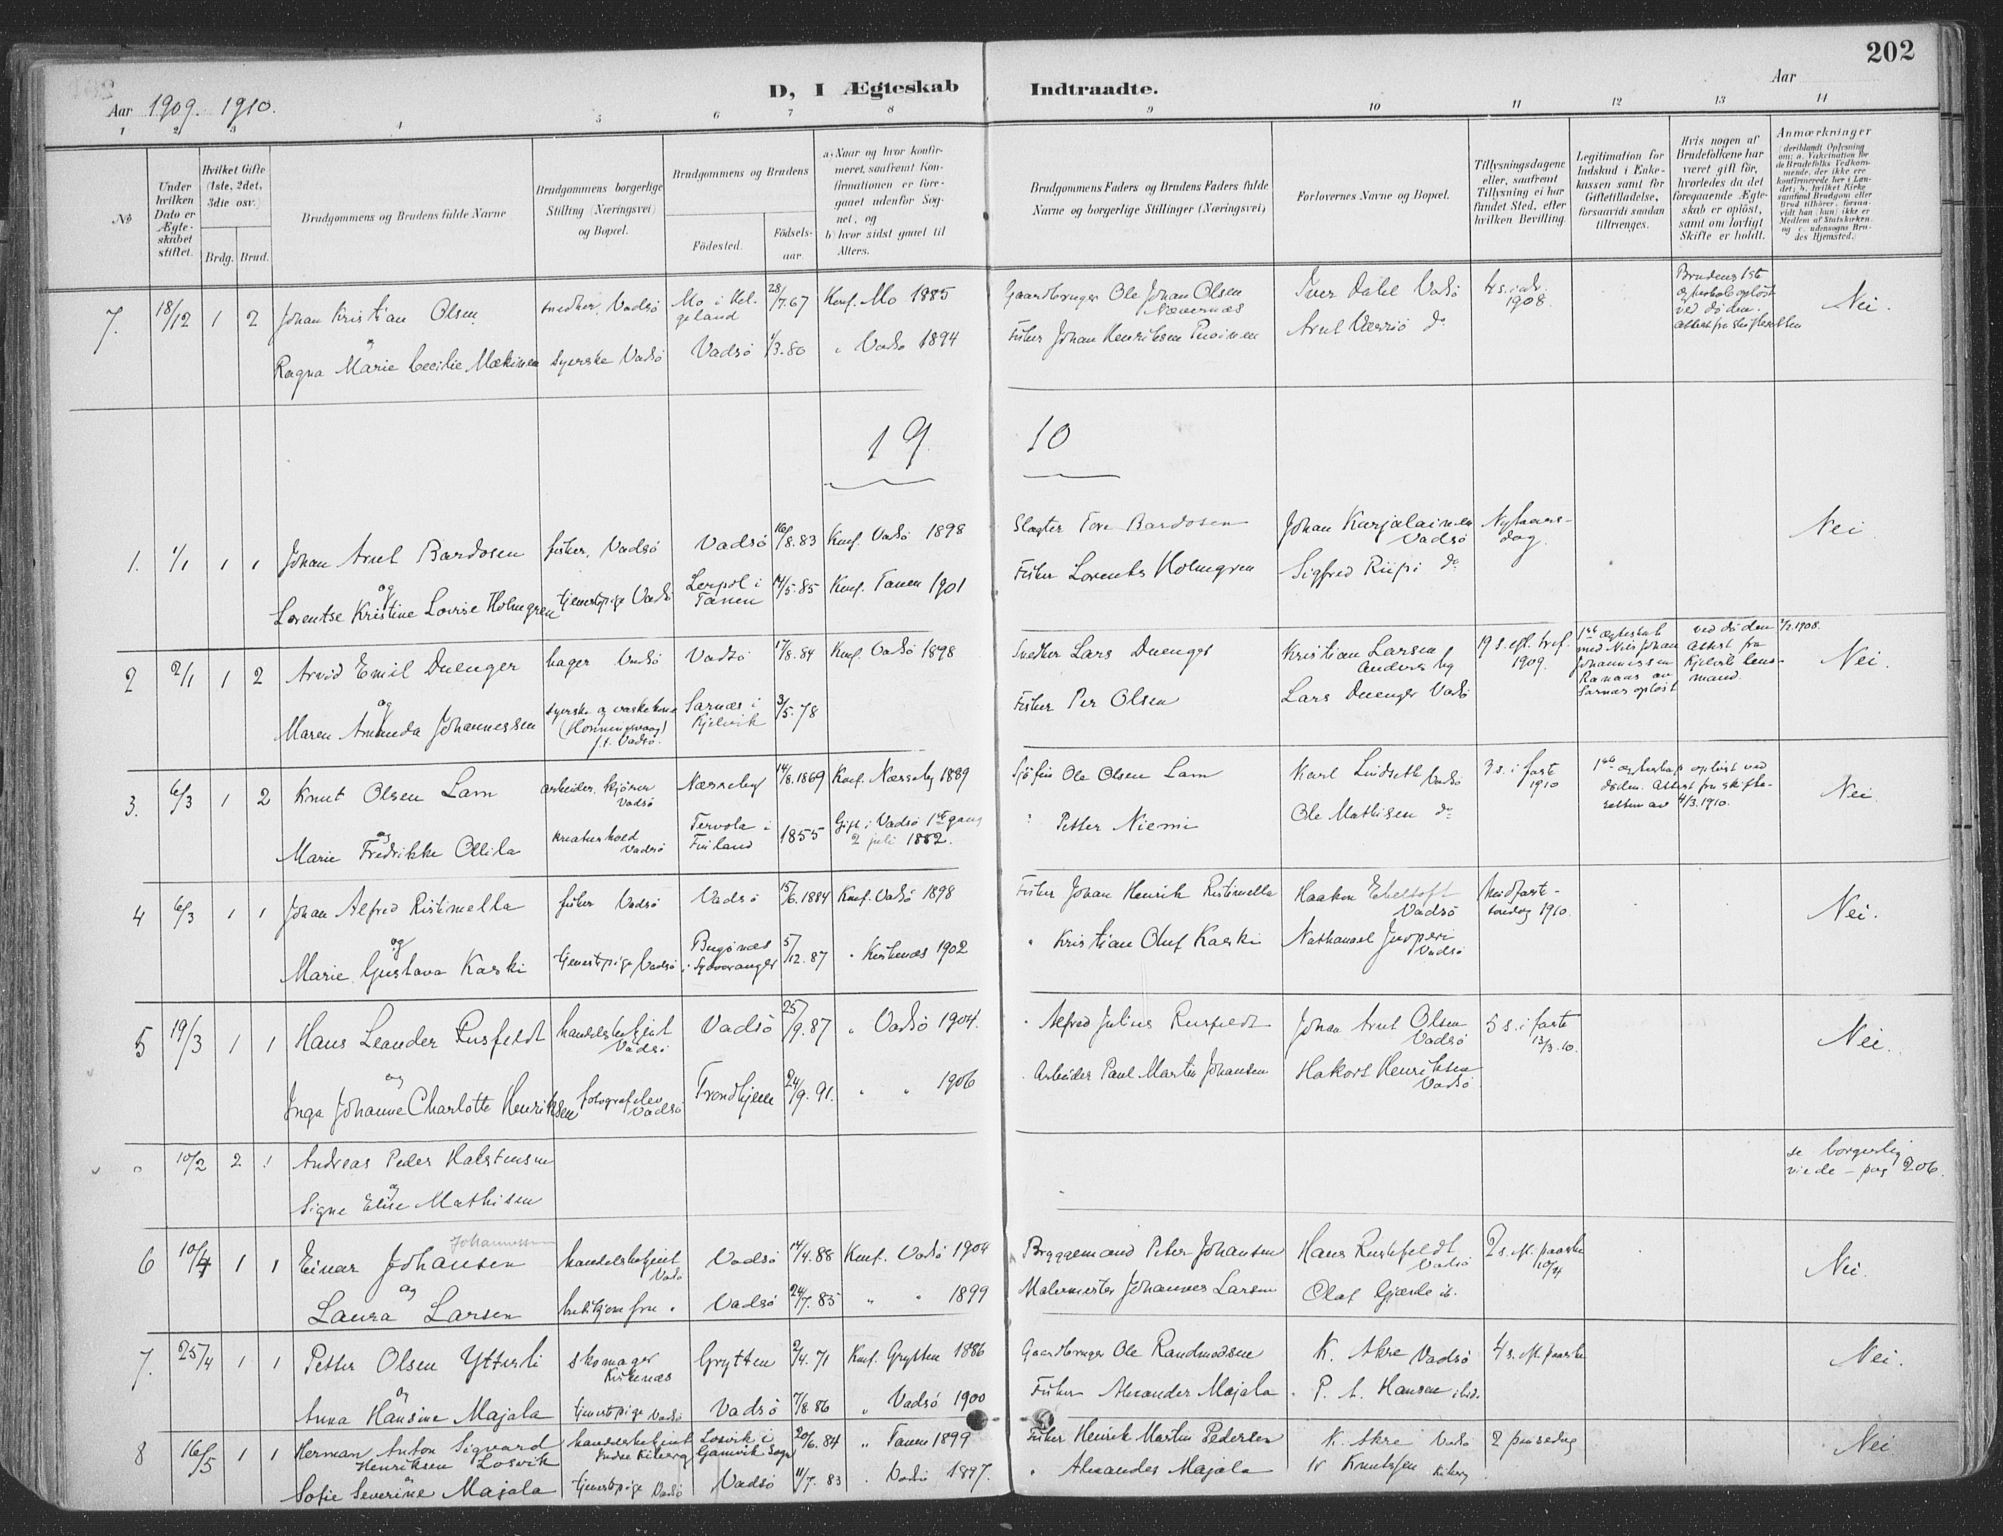 202
D, I Ægteskab Indtraadte.
Aar 1909. 1910.
Aar
1 2 3 4 5 6 7 8 9 10 11 12 13 14
No
Under hvilken Dato er Ægteskabet stiftet.
Hvilket Gifte (1ste, 2det, 3die osv.)
Brdg. Brud.
Brudgommens og Brudens fulde Navne
Brudgommens borgerlige Stilling (Næringsvei) og Bopæl.
Brudgommens og Brudens
Födested. Födselsaar.
a) Naar og hvor konfirmeret, saafremt Konfirmationen er foregaaet udenfor Sognet, og
b) hvor sidst gaaet til Alters.
Brudgommens Faders og Brudens Faders fulde Navne og borgerlige Stillinger (Næringsvei)
Forlovernes Navne og Bopæl.
Tillysningsdagene eller, saafremt Tillysning ei har fundet Sted, efter hvilken Bevilling.
Legitimation for Indskud i Enkekassen samt for Giftetilladelse, forsaavidt saadan tiltrænges.
Hvis nogen af Brudefolkene har været gift før, hvorledes da det foregaaende Ægteskab er oplöst, samt om lovligt Skifte er holdt.
Anmærkninger (deriblandt Oplysning om: a. Vakcination for de Brudefolks Vedkommende, der ikke ere konfirmerede her i Landet; b. hvilket Kirkesamfund Brudgom eller Brud tilhörer, forsaavidt han (hun) ikke er Medlem af Statskirken, og c. udensogns Brudes Hjemsted.)
7. 18/12 1 2 Johan Kristian Olsen snedker, Vadsö Mo i Helgeland 28/7.67 Konf. Mo 1885 Gaardbruger Ole Johan Olsen Iver Dahl Vadsö 4 s. i adv. 1908. Brudens 1ste ægteskab oplöst ved döden. Attest fra skifteretten Nei.
og
Ragna Marie Cecilie Mækinen syerske Vadsö Vadsö 1/3.80 " Vadsö 1894 Fisker Johan Henriksen
1910
1. 1/1 1 1 Johan Arnt Bardosen fisker, Vadsö Vadsö 16/8.83 Konf. Vadsö 1898 Slagter Tore Bardosen Johan Karjalainen Vadsö Nytaarsdag. Nei
og
Lorentse Kristine Lovise Holmgren tjenestpige Vadsö i Tanen 14/5.85 Konf. Tanen 1901 Fisker Lorents Holmgren Sigfred Riipi do
2 2/1 1 2 Arvid Emil Duenger bager Vadsö Vadsö 17/8.84 Konf. Vadsö 1898 Snedker Lars Duenger Kristian Larsen Andersby 19 s. eft. tref. 1909. 1ste ægteskab med Nils Johan Johannessen av Sarnæs oplöst ved döden 2/2.1908. Attest fra Kjelvik lensmand. Nei.
og
Maren Amanda Johannessen syerske og vaskekone (Honningsvaag) f.t. Vadsö. Sarnæs i Kjelvik 3/5.78 Fisker Per Olsen Lars Duenger Vadsö
3. 6/3 1 2 Knut Olsen Lam arbeider, kjörer Vadsö Næsseby 14/8.1869 Konf. Næsseby 1889 Sjöfin Ole Olsen Lam Karl Lindseth Vadsö 3 s. i faste 1910 1ste ægteskap oplöst ved döden. Attest fra skifteretten av 4/3.1910. Nei
og
Marie Fredrikke Ollila kreaturhold Vadsö Tervola i Finland 1855 Gift i Vadsö 1ste gang 2 juli 1882. " Petter Niemi Ole Mathisen do
4 6/3 1 1 Johan Alfred Ristimella fisker Vadsö Vadsö 15/6.1884 Konf. Vadsö 1898 Fisker Johan Henrik Ristimella Haakon Ebeltoft Vadsö Midfastesöndag 1910. Nei.
og
Marie Gustava Karki tjenestpige Vadsö Bugönæs i Sydvaranger 5/12.87 " Kirkenæs 1902 " Kristian Oluf Karki Nathanael Vadsö
5 19/3 1 1 Hans Leander Rusfeldt handelsbetjent Vadsö Vadsö 25/9.87 " Vadsö 1904. " Alfred Julius Rusfeldt Johan Arnt Olsen Vadsö 5 s. i faste 13/3.10. Nei.
og
Inga Johanne Charlotte Henriksen fotografelev Vadsö Trondhjem 24/9.91. " " 1906 Arbeider Paul Martin Johansen Hakon Henriksen Vadsö
" 10/2 2 1 Andreas Peder Halstensen se borgerlig viede – pag 206.
og
Signe Elise Mathisen
6 10/4 1 1 Einar Johansen Johannessen handelsbetjent Vadsö Vadsö 14/4.88 Konf. Vadsö 1904 Bryggemand Peter Johansen Hans Rustefeldt Vadsö 2 s. eft. paaske 10/4 Nei.
og
Laura Larsen Vadsö 24/7.85 " " 1899 Malermester Johannes Larsen Olaf Gjærde ib.
7. 25/4 1 1 Petter Olsen Ytterli skomager Kirkenæs Grytten 2/4.71 Konf. Grytten 1886 Gaardbruger Ole Randmodsen K. Akre Vadsö 4 s. eft. paaske Nei.
og
Anna Hansine Majala tjenestpige Vadsö Vadsö 7/8.86 " Vadsö 1900 Fisker Alexander Majala P. A. Hansen ibid.
8 16/5 1 1 Herman Anton Sigvard Henriksen Losvik handelsbetjent Indre Kiberg Losvik i Gamvik Sogn 20/6.84 " Tanen 1899 Fisker Henrik Martin Pedersen K. Akre Vadsö 2 pinsedag Nei
og
Sofie Severine Majala tjenestpige Vadsö Vadsö 11/7.83 " Vadsö 1897. " Alexander Majala Knutssen Kiberg